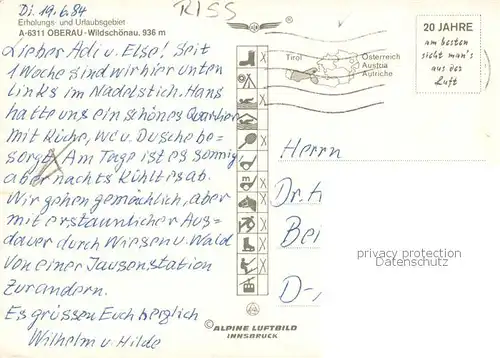 Di. 19.6.84
RISS
Erholungs- und Urlaubsgebiet
A-6311 OBERAU - Wildschönau, 936 m
Lieber Adi u. Else! Seit
1 Woche sind wir hier unten
links im Nadelstich. Hans
hatte uns ein schönes Quartier
mit Küche, WC u. Dusche be-
sorgt. Am Tage ist es sonnig,
aber nachts kühlt es ab.
Wir gehen gemächlich, aber
mit erstaunlicher Aus-
dauer durch Wiesen u. Wald
von einer Jausenstation
zur andern.
Es grüssen Euch herzlich
Wilhelm u. Hilde
Tirol
Österreich
Austria
Autriche
20 JAHRE
am besten
sieht man's
aus der
Luft
Herrn
Dr. H
Bei
D-
privacy protection
Datenschutz
© ALPINE LUFTBILD
INNSBRUCK